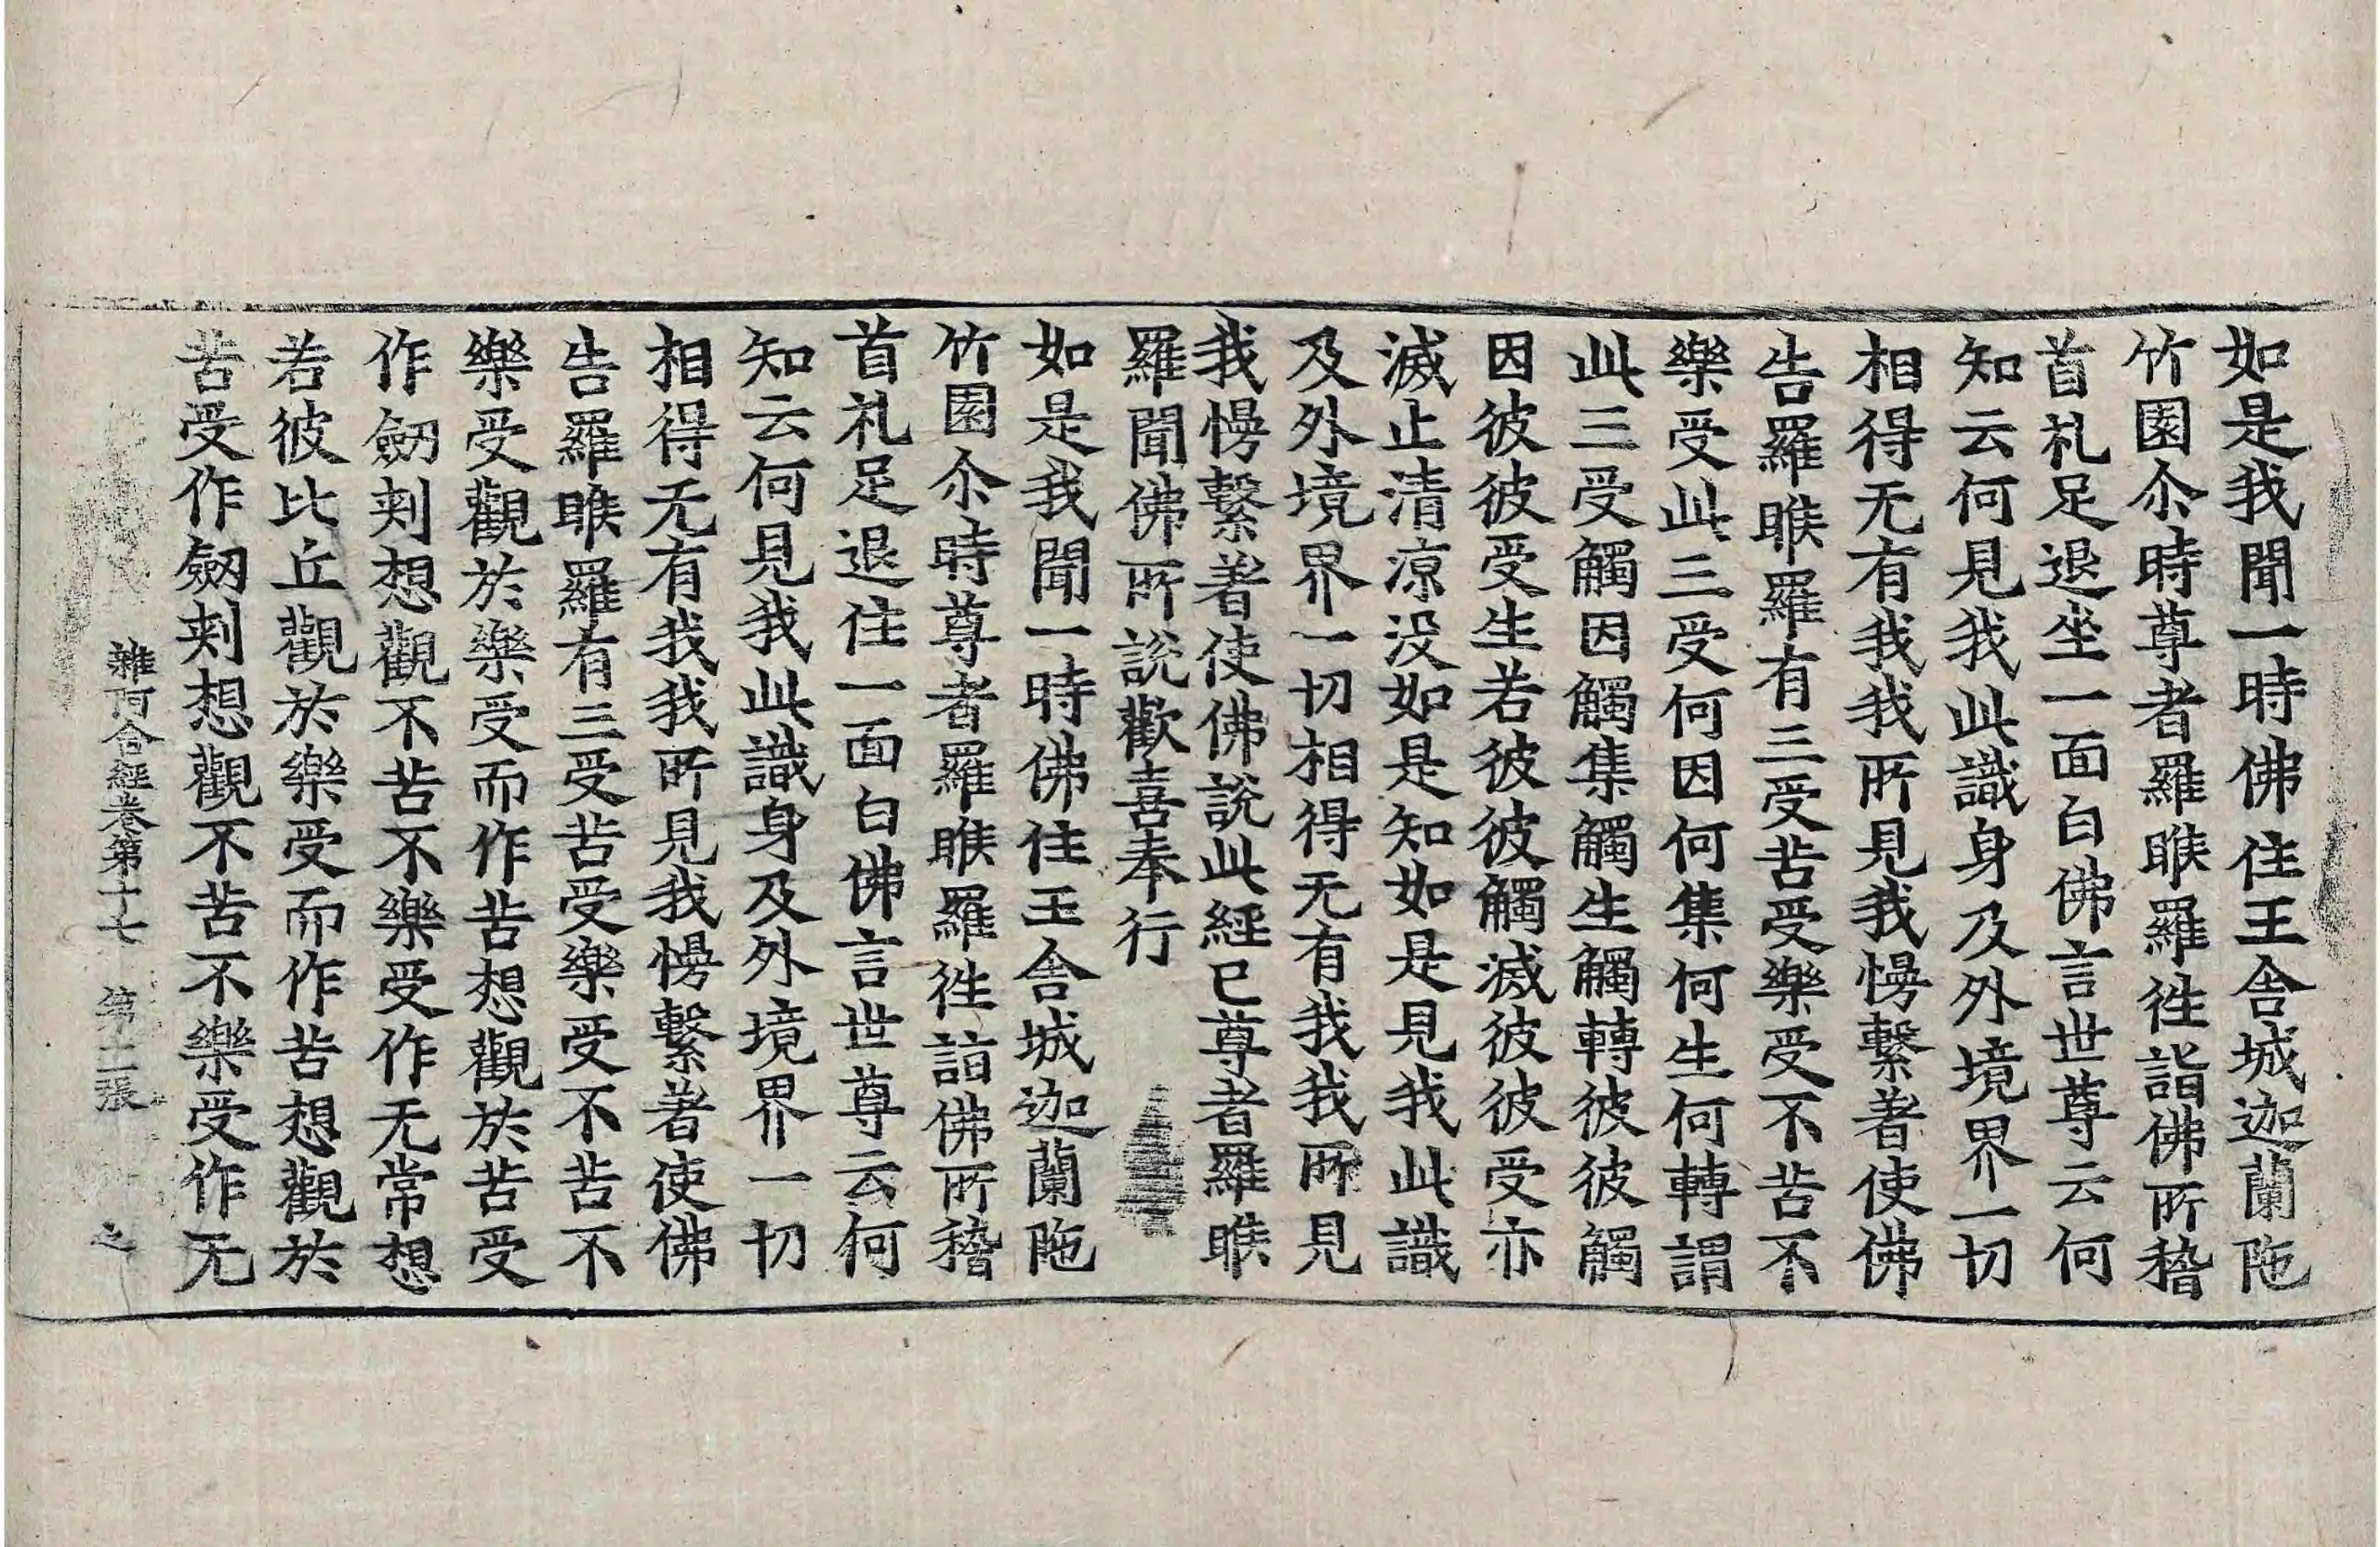 如是我聞一時佛住王舍城迦蘭陁
竹園尒時尊者羅睺羅徃詣佛所稽
首礼足退坐一面白佛言世尊云何
知云何見我此識身及外境界一切
相得无有我我所見我慢繫著使佛
告羅睺羅有三受苦受樂受不苦不
樂受此三受何因何集何生何轉謂
此三受觸因觸集觸生觸轉彼彼觸
因彼彼受生若彼彼觸滅彼彼受亦
滅止清涼没如是知如是見我此識
及外境界一切相得无有我我所見
我慢繫著使佛說此經已尊者羅睺
羅聞佛所說歡喜奉行
如是我聞一時佛住王舍城迦蘭陁
竹園尒時尊者羅睺羅徃詣佛所稽
首礼足退住一面白佛言世尊云何
知云何見我此識身及外境界一切
相得无有我我所見我慢繫著使佛
告羅睺羅有三受苦受樂受不苦不
樂受觀於樂受而作苦想觀於苦受
作劒刾想觀不苦不樂受作无常想
若彼比丘觀於樂受而作苦想觀於
苦受作劒刾想觀不苦不樂受作无
雜阿含經卷第十七 第二張